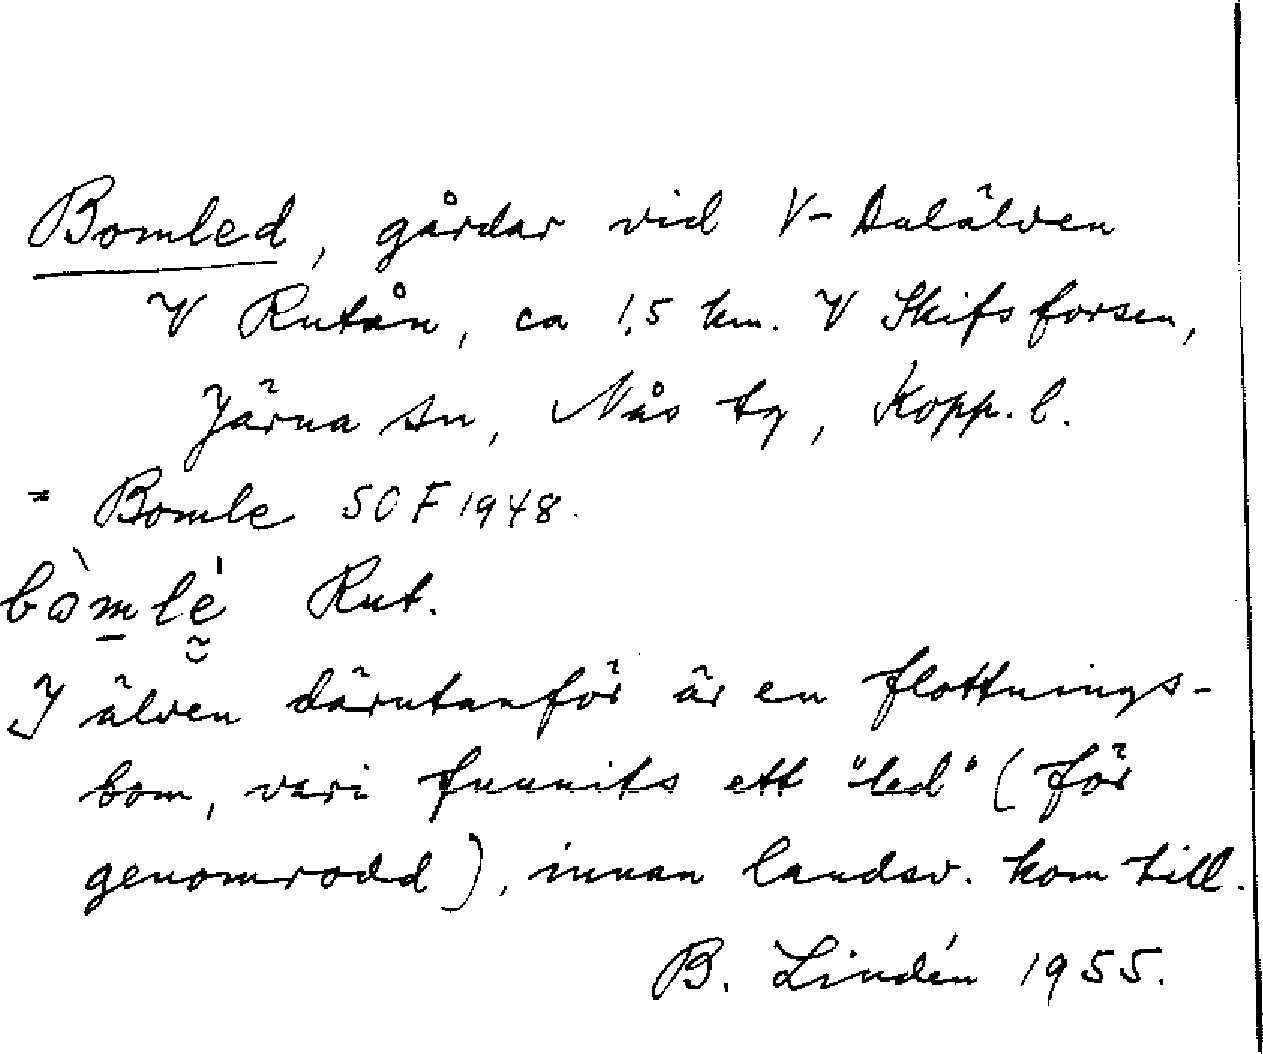 Bomled, gårdar vid V-Dalälven
V Rutån, ca 1,5 km. V Skifsforsen,
Järna sn, Nås tg, Kopp. l.
= Bomle SOF 1948.
bò̀mlé Rut.
I älven därutanför är en flottnings-
bom, vari funnits ett "led" (för
genomrodd), innan landsv. kom till.
B. Lindén 1955.